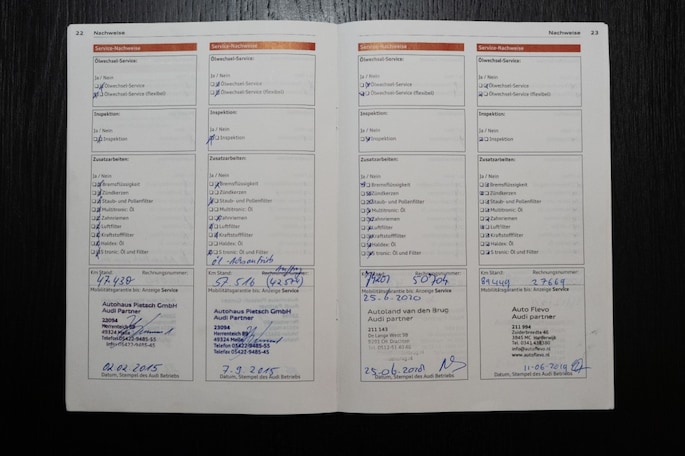 22 Nachweise
Service-Nachweise
Ölwechsel-Service:
Ja / Nein
Ölwechsel-Service
Ölwechsel-Service (flexibel)
Inspektion:
Ja / Nein
Inspektion
Zusatzarbeiten:
Ja / Nein
Bremsflüssigkeit
Zündkerzen
Staub- und Pollenfilter
Multitronic: Öl
Zahnriemen
Luftfilter
Kraftstofffilter
Haldex: Öl
S tronic: Öl und Filter
Km Stand: Rechnungsnummer:
47.438
Mobilitätsgarantie bis: Anzeige Service
Autohaus Pietsch GmbH
Audi partner
49324 Melle
Telefon 05422-9485-55
02.02.2015
Datum, Stempel des Audi Betriebs
Service-Nachweise
Ölwechsel-Service:
Ja / Nein
Ölwechsel-Service
Ölwechsel-Service (flexibel)
Inspektion:
Ja / Nein
Inspektion
Zusatzarbeiten:
Ja / Nein
Bremsflüssigkeit
Zündkerzen
Staub- und Pollenfilter
Multitronic: Öl
Zahnriemen
Luftfilter
Kraftstofffilter
Haldex: Öl
S tronic: Öl und Filter
Km Stand:
57.516
Mobilitätsgarantie bis: Anzeige Service
Autohaus Pietsch GmbH
Audi Partner
49324 Melle
Telefon 05422-9485-55
7.9.2015
Datum, Stempel des Audi Betriebs
Nachweise 23
Service-Nachweise
Ölwechsel-Service:
Ja / Nein
Ölwechsel-Service
Ölwechsel-Service (flexibel)
Inspektion:
Ja / Nein
Inspektion
Zusatzarbeiten:
Ja / Nein
Bremsflüssigkeit
Zündkerzen
Staub- und Pollenfilter
Multitronic: Öl
Zahnriemen
Luftfilter
Kraftstofffilter
Haldex: Öl
S tronic: Öl und Filter
Km Stand: Rechnungsnummer:
Mobilitätsgarantie bis: Anzeige Service
25.6.2020
Autoland van den Brug
Audi partner
211 543
De Lange West 98
Datum, Stempel des Audi Betriebs
Service-Nachweise
Ölwechsel-Service:
Ja / Nein
Ölwechsel-Service
Ölwechsel-Service (flexibel)
Inspektion:
Ja / Nein
Inspektion
Zusatzarbeiten:
Ja / Nein
Bremsflüssigkeit
Zündkerzen
Staub- und Pollenfilter
Multitronic: Öl
Zahnriemen
Luftfilter
Kraftstofffilter
Haldex: Öl
S tronic: Öl und Filter
Km Stand: Rechnungsnummer:
27669
Mobilitätsgarantie bis: Anzeige Service
Auto Flevo
Audi partner
211 994
Zonderbreedte 46
3845 MC Harderwijk
info@autoflevo.nl
www.autoflevo.nl
11-06-2019
Datum, Stempel des Audi Betriebs